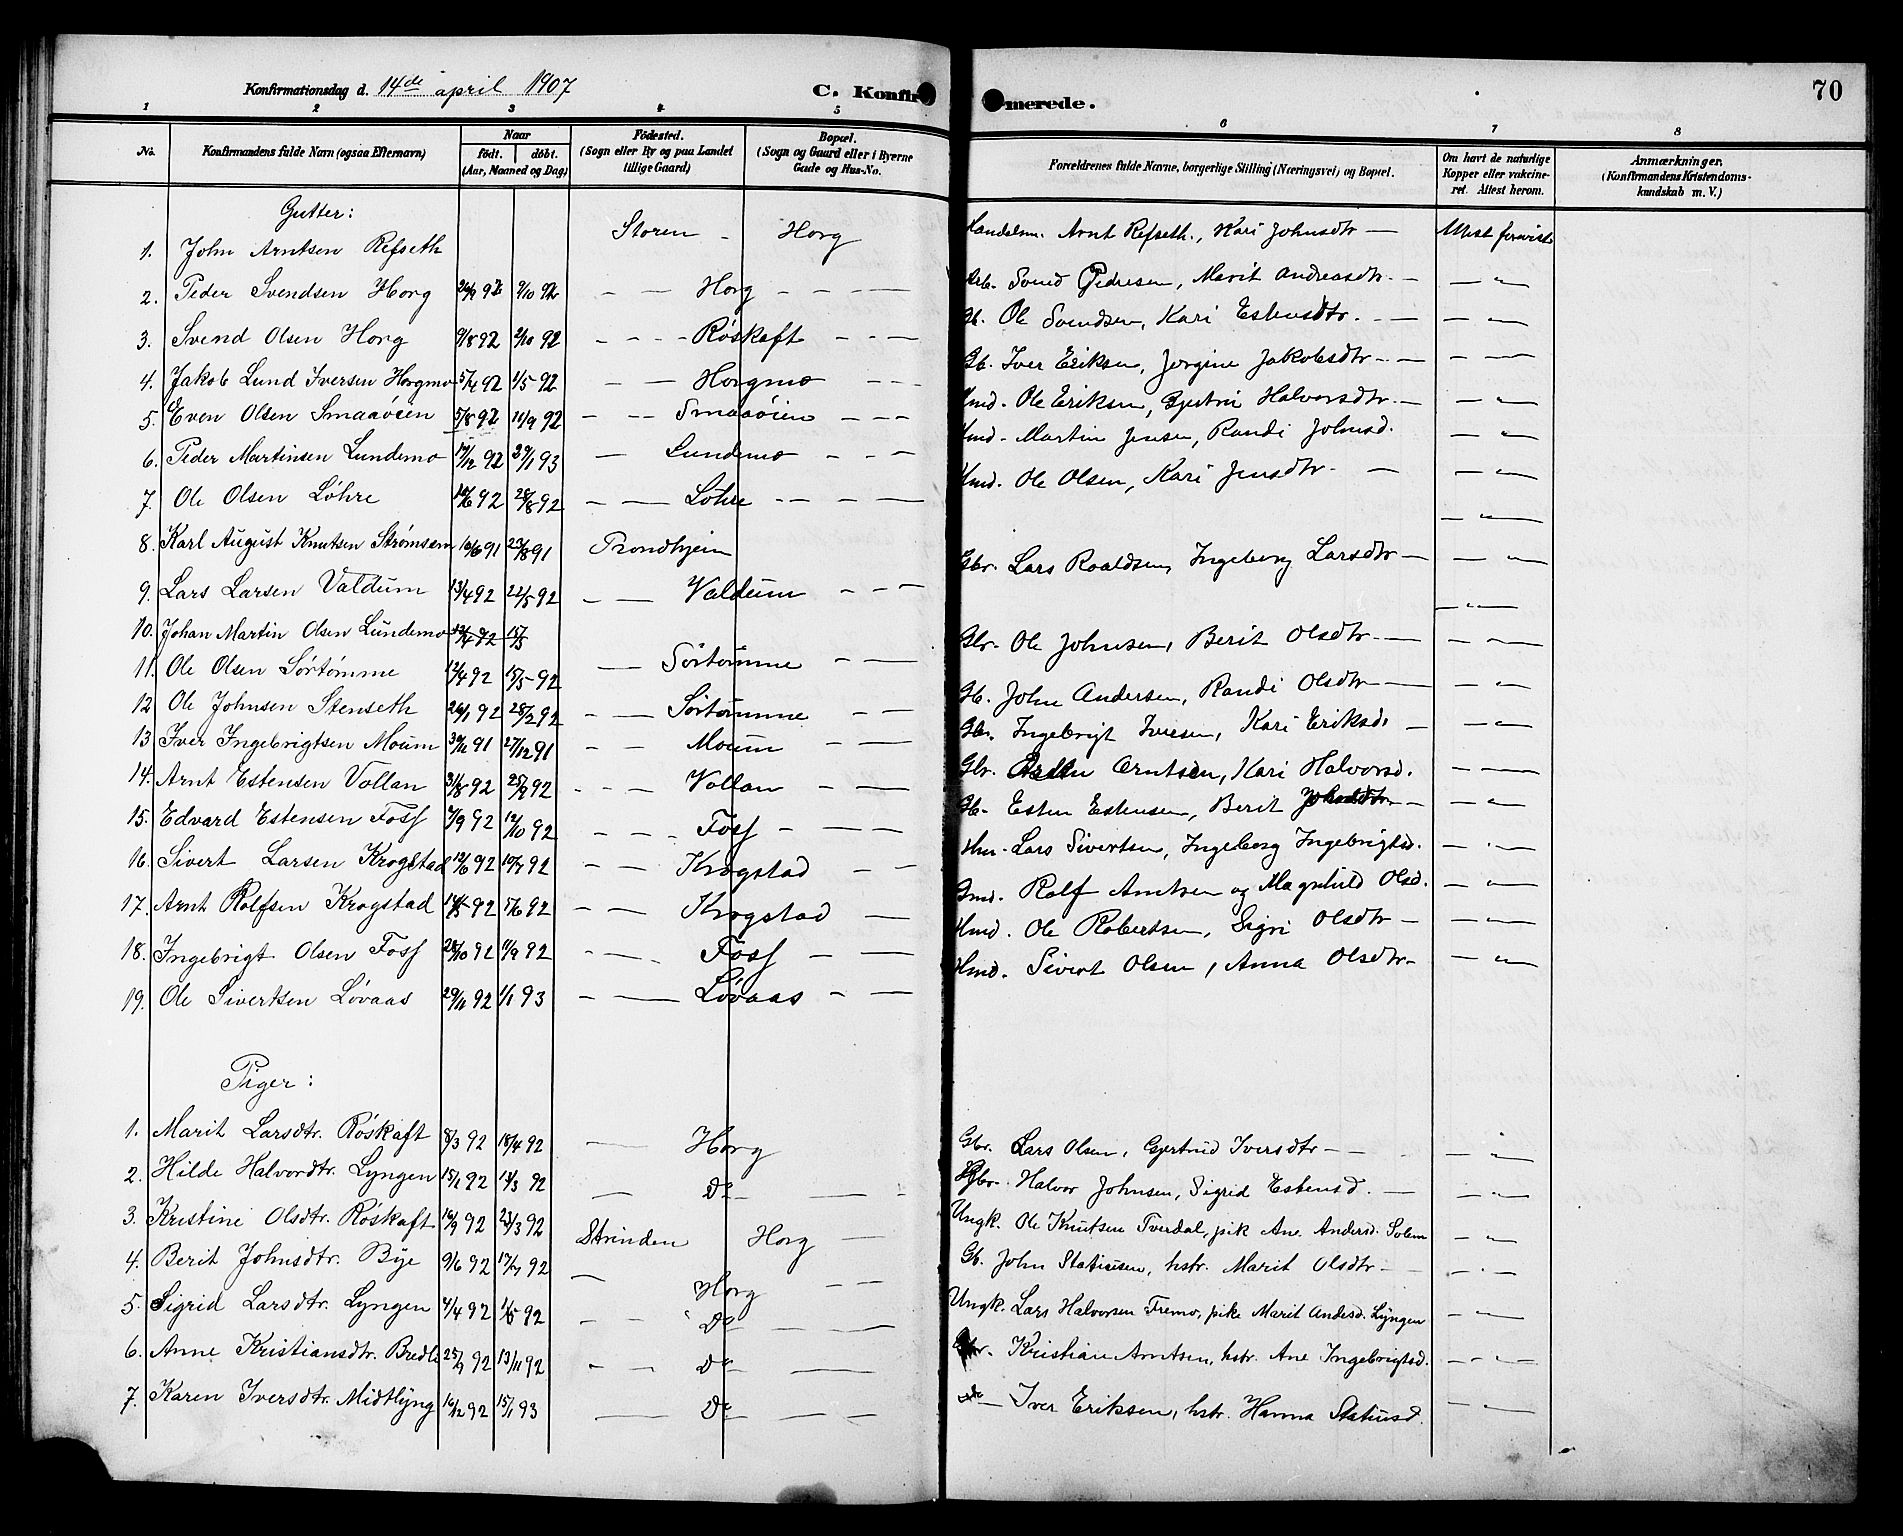 Konfirmationsdag d. 14de april 1907 C. Konfirmerede. 70
1 2 3 4 5 6 7 8
No. Konfirmandens fulde Navn (ogsaa Efternavn) Naar født. døbt. (Aar, Maaned og Dag) Fødested. (Sogn eller By og paa Landet tillige Gaard) Bopæl. (Sogn og Gaard eller i Byerne Gade og Hus-No. Forældrenes fulde Navne, borgerlige Stilling (Næringsvei) og Bopæl. Om havt de naturlige Kopper eller vakcineret. Attest herom. Anmærkninger. (Konfirmandens Kristendomskundskab m. V.)
Gutter:
1. John Arntsen Refseth Støren - Horg Handelsm. Arnt Refseth., Kari Johnsdtr — Attest forevist
2. Peder Svendsen Horg 92 2/10 92 — — Horg - - - — Arb. Svend Pedersen, Marit Andreasdtr. — — " —
3. Svend Olsen Horg 9/8 92 2/10 92 - - - - Røskaft - - — Gb. Ole Svendsen, Kari Estensdtr. - — — " —
4. Jakob Lund Iversen Horgmo 5/4 92 1/5 92 — — Horgmo - - - Gb. Iver Eriksen, Jørgine Jakobsdtr - — — " —
5. Even Olsen Smaaøien 5/8 92 11/9 92 - - - Smaaøien - - — Hmd. Ole Eriksen, Gjertru Halvorsdtr. — — " —
6. Peder Martinsen Lundemo 92 93 — Lundemo - - - Hmd. Martin Jensen, Randi Johnsd. — " —
7. Ole Olsen Løhre 92 28/8 92 — — Løhre - - - — Hmd. Ole Olsen, Kari Jensdtr. — — " —
8. Karl August Knutsen Strømsem 10/6 91 23/8 91 Trondhjem — " —
9. Lars Larsen Valdum 13/4 92 22/5 92 — — Valdum - — - Gbr. Lars Roaldsen, Ingeborg Larsdtr — — " —
10. Johan Martin Olsen Lundemo 92 15/5 — " —
11. Ole Olsen Sørtømme 12/4 92 15/5 92 — Sørtømme - — Gbr. Ole Johnsen, Berit Olsdtr — — " —
12 Ole Johnsen Stenseth 26/1 92 28/2 92 - — Sørtømme — — Gb. John Andersen, Randi Olsdtr — — " —
13 Iver Ingebrigtsen Moum 30/11 91 27/12 91 - - Moum - — Gbr. Ingebrigt Iversen, Kari Eriksd. — " —
14. Arnt Estensen Vollan 31/8 92 25/9 92 - - - Vollan - — Gbr. Arntsen, Kari Halvorsd. — " —
15. Edvard Estensen Foss 7/9 92 12/10 92 - - - Foss - — — Gb. Esten Estensen, Berit Johnsdtr — — " —
16. Sivert Larsen Krogstad 12/6 92 10/7 92 - — Krogstad — - Hm. Lars Sivertsen, Ingeborg Ingebrigtsd. — " —
17. Arnt Rolfsen Krogstad 92 92 - — Krogstad — Gmd. Rolf Arntsen og Magnhild Olsd. — " —
18. Ingebrigt Olsen Foss 28/10 92 11/9 92 - — - Foss - — Hmd. Ole Robertsen, Sigri Olsdtr — — " —
19. Ole Sivertsen Løvaas 29/11 92 1/1 93 - — Løvaas - — Hmd. Sivert Olsen, Anna Olsdtr - — " —
Piger:
1. Marit Larsdtr. Røskaft 8/3 92 18/4 92 — Horg Gbr. Lars Olsen, Gjertrud Iversdtr - — — " —
2. Hilde Halvordtr. Lyngen 15/1 92 13/3 92 — Do — - Gbr. Halvor Johnsen, Sigrid Estensd. — — " —
3. Kristine Olsdtr. Røskaft 16/9 92 23/3 92 Strinden Horg — Ungk. Ole Knutsen Tverdal, pik Ane Andersd. Solem — " —
4. Berit Johnsdtr. Bye 9/6 92 17/7 92 — Horg — — Gb. John Statiusen, hstr. Marit Olsdtr — — " —
5. Sigrid Larsdtr. Lyngen 4/4 92 1/5 92 - — Do - — Ungk. Lars Halvorsen Fremo, pike Marit Andersd. Lyngen — " —
6. Anne Kristiansdtr. Bredli 25/9 92 13/11 92 - — Do — Gbr. Kristian Arntsen, hstr. Ane Ingebrigtsd. — " —
7. Karen Iversdtr. Midtlyng 16/12 92 15/1 93 — Do — — Do — Iver Eriksen, hstr. Hanna Statiusd. — " —